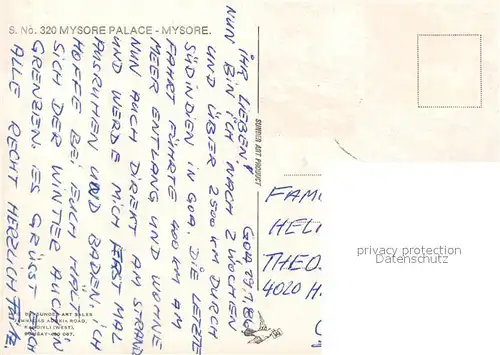 S. No. 320 MYSORE PALACE - MYSORE.
GOA 29.1.86
IHR LIEBEN!
NUN BIN ICH NACH 2 WOCHEN
UND ÜBER 2500 KM DURCH
SÜDINDIEN IN GOA. DIE LETZTE
FAHRT FÜHRTE 400 KM AM
MEER ENTLANG UND WOHNE
NUN AUCH DIREKT AM STRAND
UND WERDE MICH ERST MAL
AUSRUHEN UND BADEN. ICH
HOFFE BEI EUCH HÄLT
SICH DER WINTER AUCH IN
GRENZEN. ES GRÜSST EUCH
ALLE RECHT HERZLICH
SUNDER ART PRODUCT
ART SALES
ROAD,
(WEST),
FAM
HEL
THEO
4020
privacy protection
DELCAMPE.NET